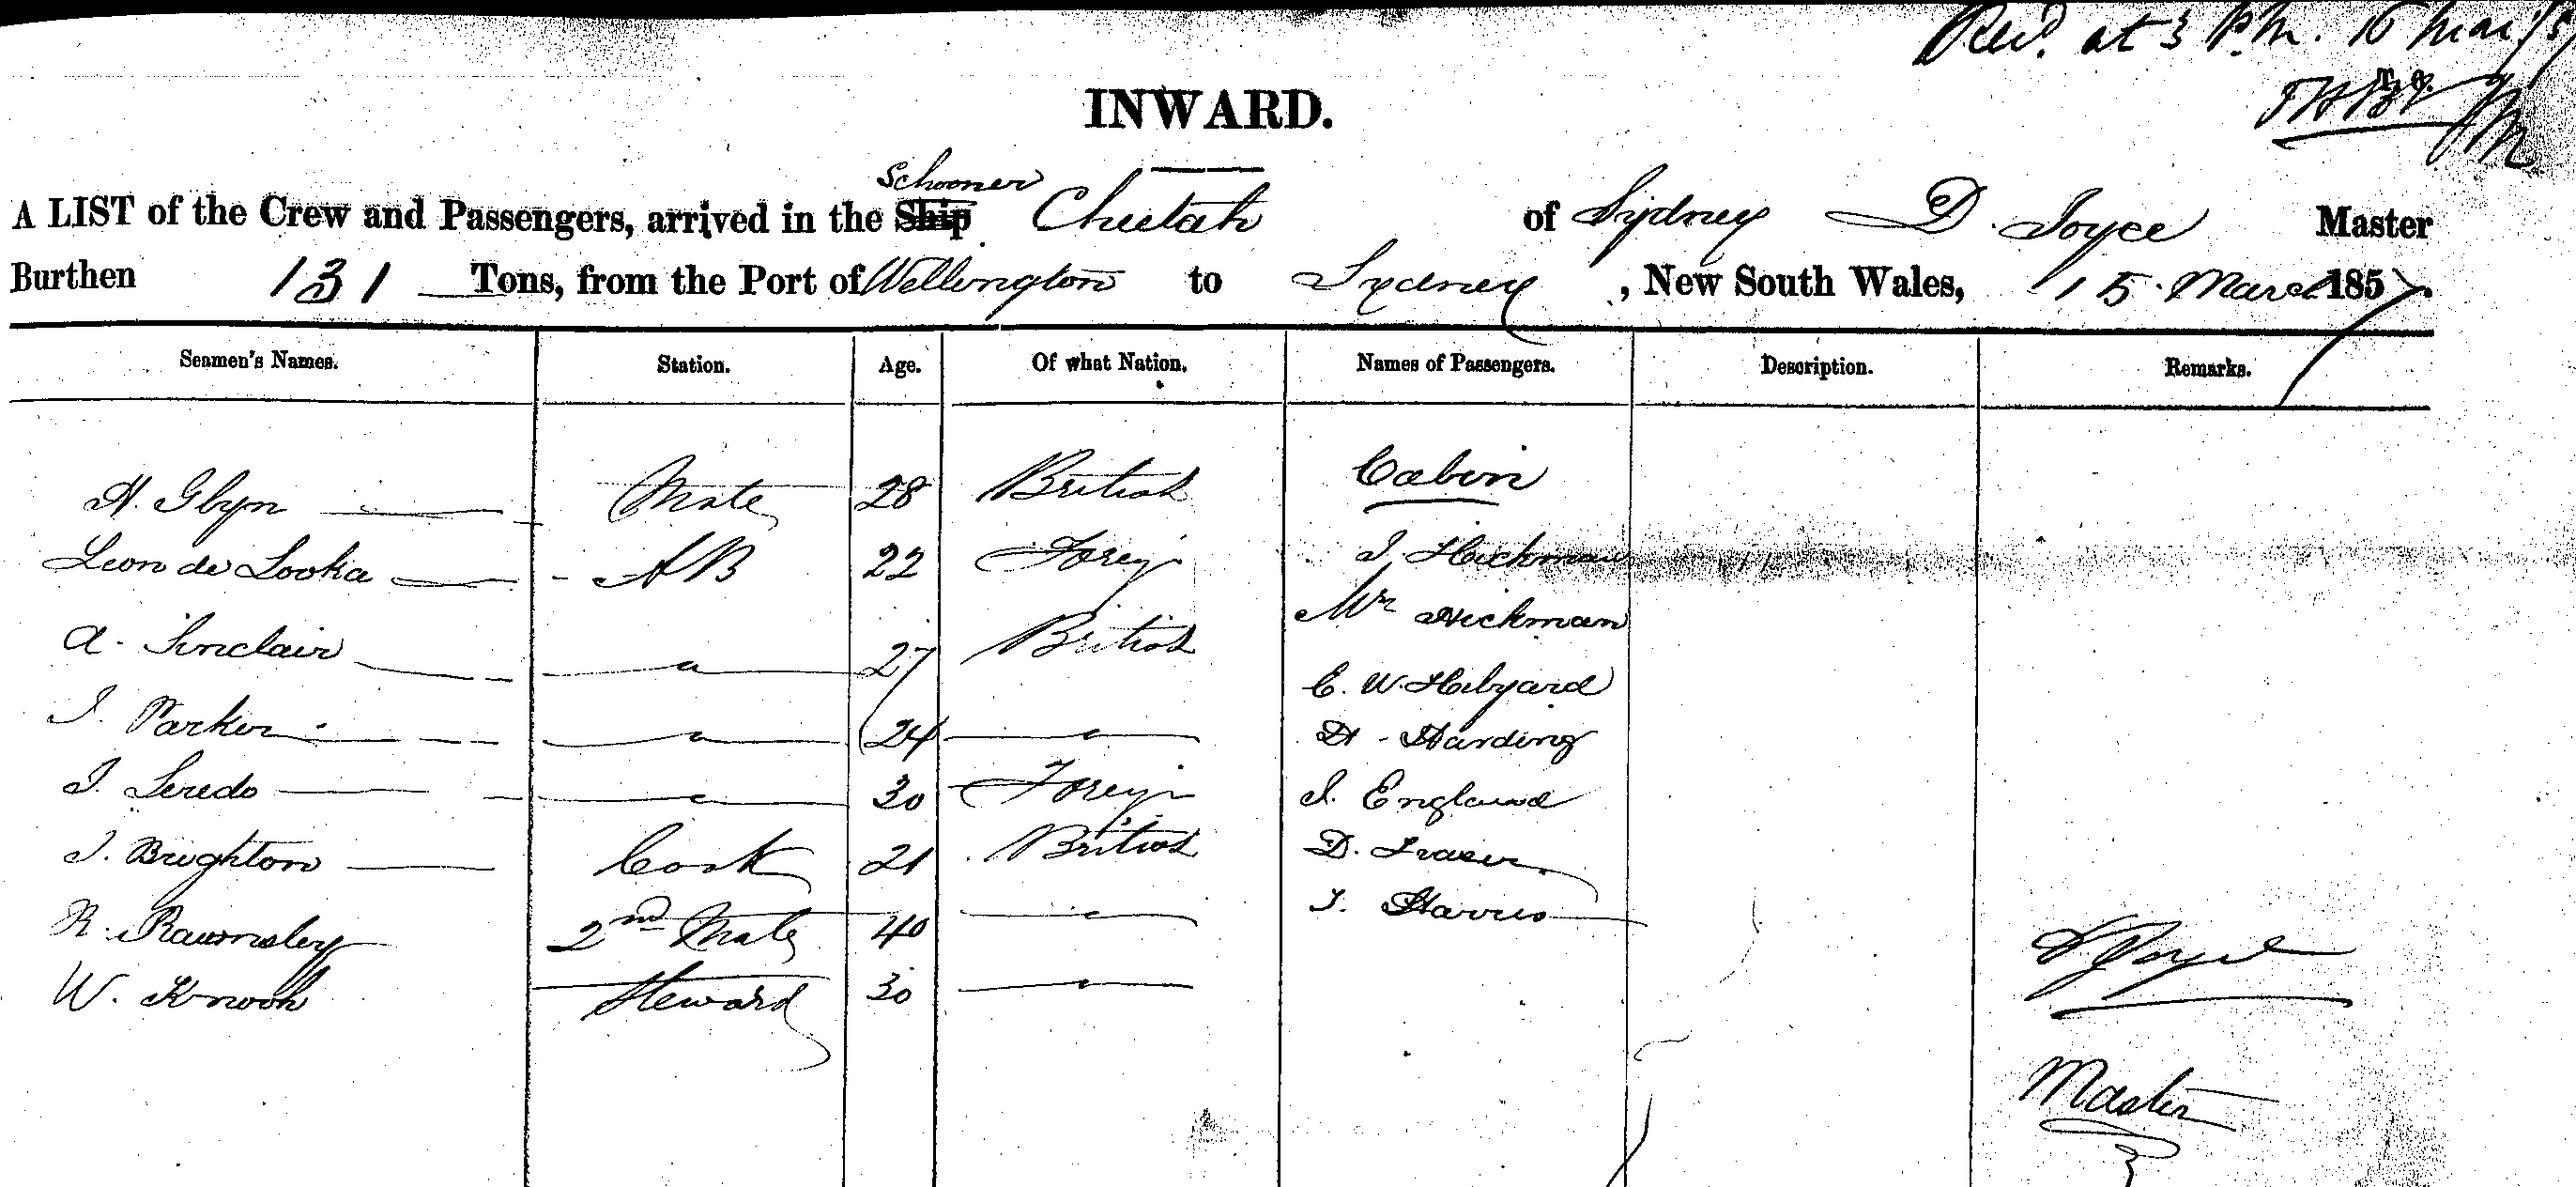 Recd. at 3 P.M. 16 Mar/57
INWARD.
Schooner
A LIST of the Crew and Passengers, arrived in the Ship Cheetah of Sydney D. Joyce Master
Burthen 131 Tons, from the Port of Wellington to Sydney, New South Wales, 15 March 1857.
Seamen's Names. Station. Age. Of what Nation. Names of Passengers. Description. Remarks.
Cabin
H. Glyn Mate 28 British
Leon de Looka AB 22 Foreign J. Hickman
A. Sinclair " 27 British Mrs Hickman
C. W. Hilyard
J. Parker " 24 " H. Harding
J. Seredo " 30 Foreign J. England
J. Brighton Cook 21 British D. Fraser
R. Rawnsley 2nd Mate 40 " J. Harris
D. Joyce
W. Knook Steward 30 "
Master